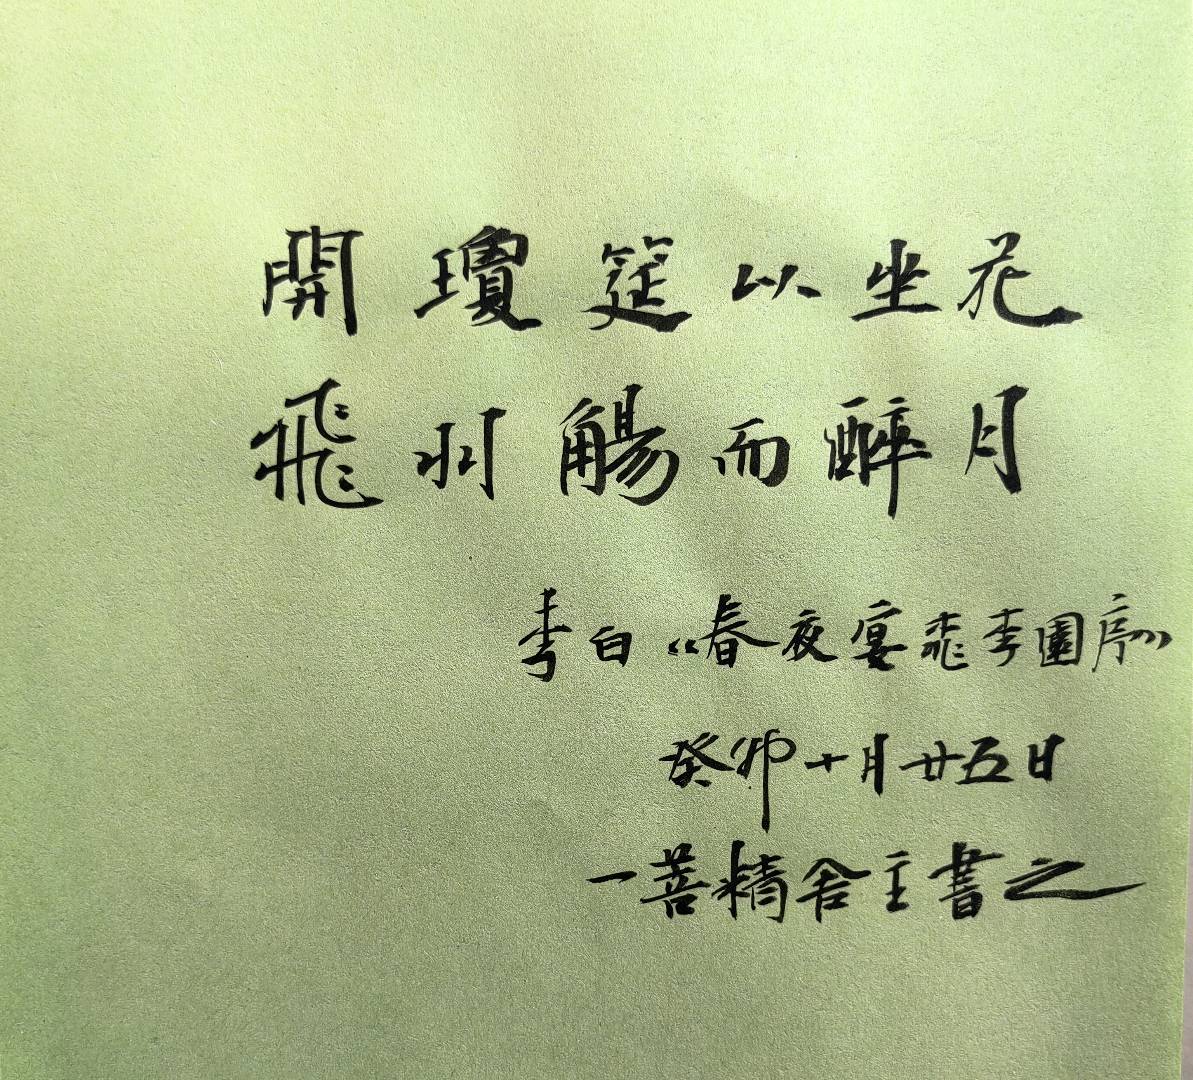 開瓊筵以坐花
飛羽觴而醉月
李白《春夜宴桃李園序》
癸卯十月廿五日
一善精舍主書之